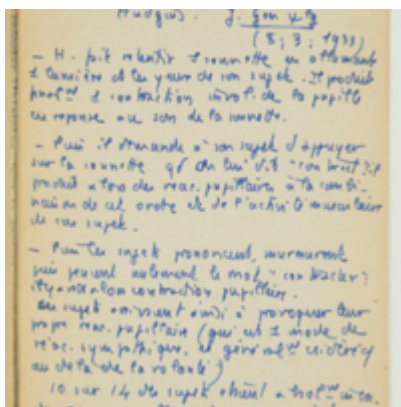 Hudgins. J. Gen
(8; 3; 1933)
— H. fait retentir 1 sonnette en allumant
1 lumière et les yeux de son sujet. Il produit
1 contraction invol. de la pupille
en réponse au son de la sonnette.
— Puis il demande à son sujet d'appuyer
sur la sonnette qd on lui dit "contract": il
produit alors des réac. pupillaires à la combi-
naison de cet ordre et de l'activité musculaire
de son sujet.
— Puis les sujets prononcent, murmurent
puis pensent seulement le mot "contracter":
il y a alors contraction pupillaire.
Les sujets arrivent ainsi à provoquer leur
propre réac. pupillaire (qui est 1 mode de
réac. sympathique, et généralᵐᵗ considéré
au delà de la volonté)
10 sur 14 des sujets étaient